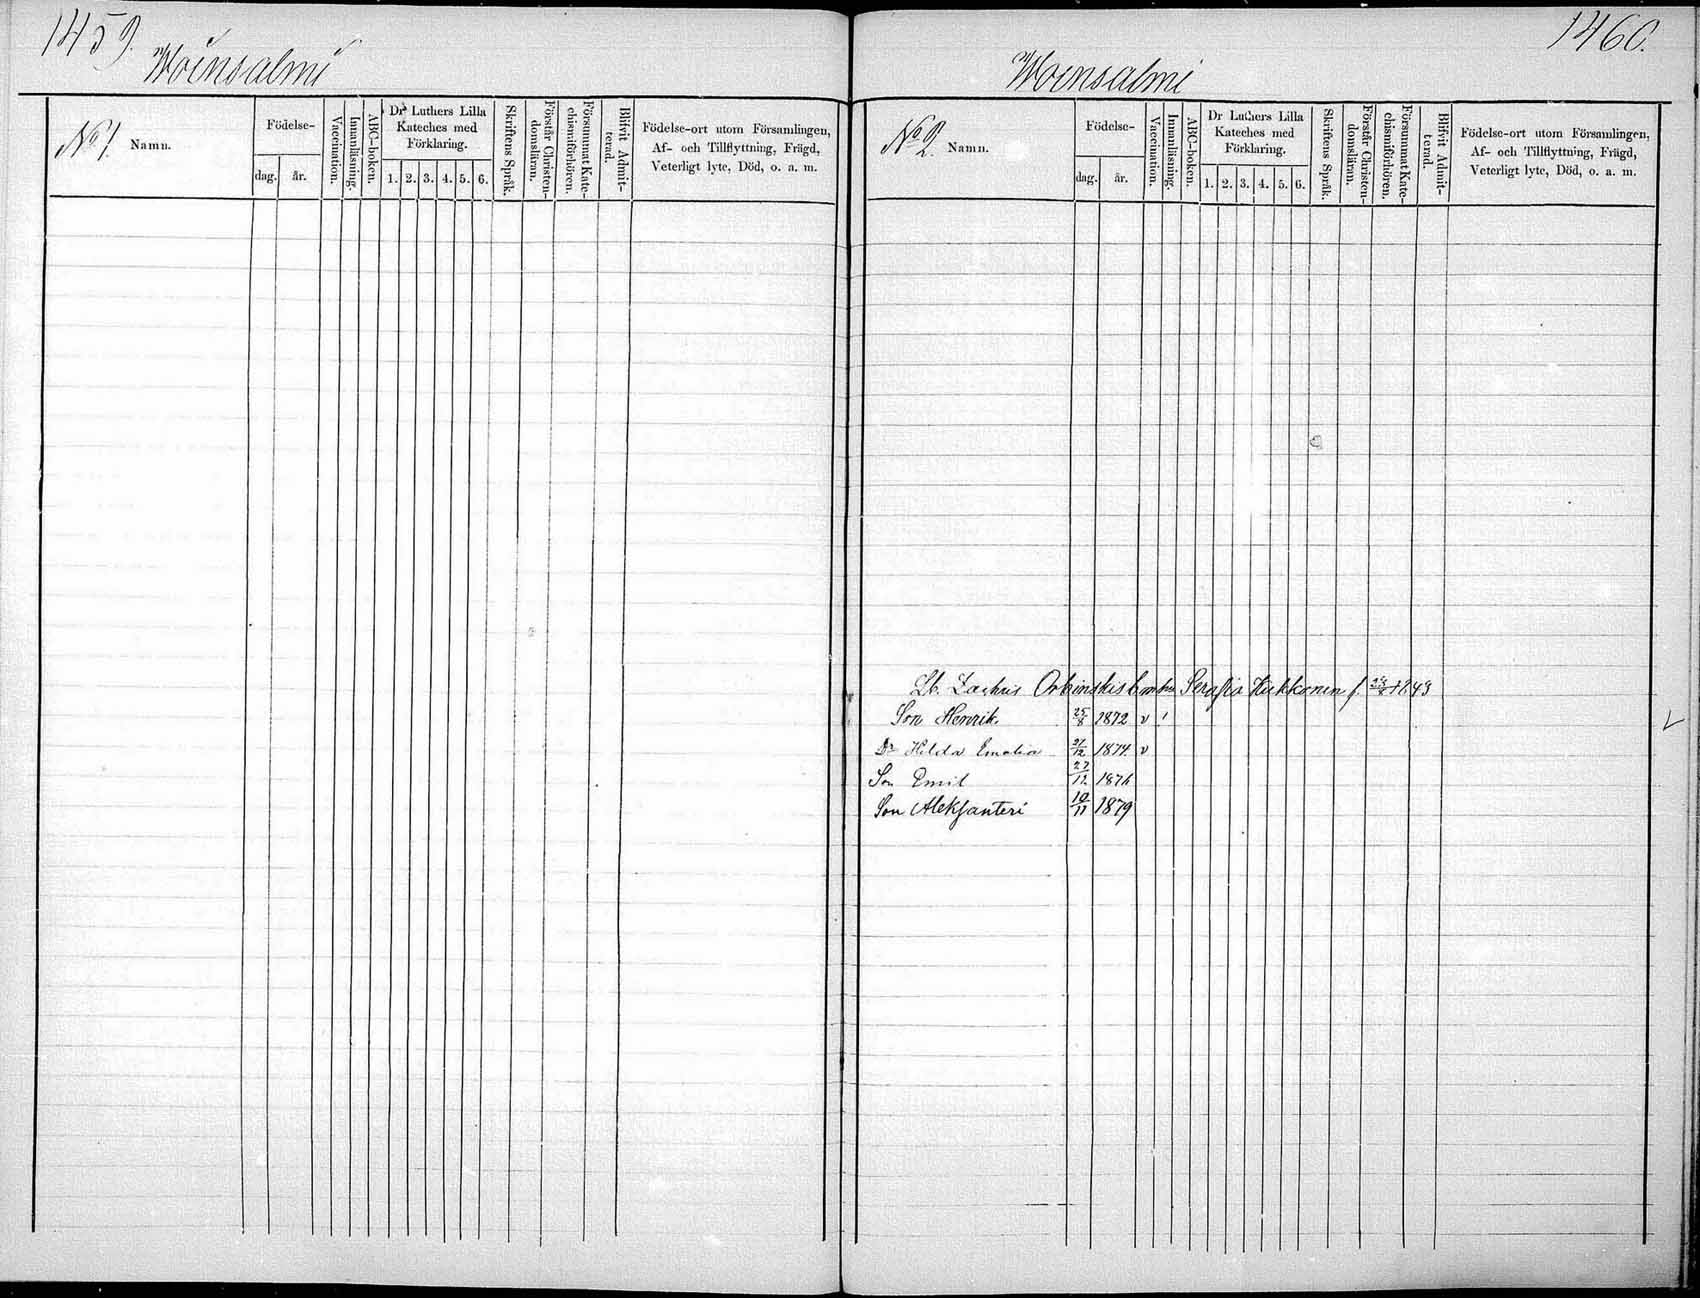 1459.
Woinsalmi
No 1. Namn.
Födelse-
dag. år.
Vaccination.
Innanläsning.
ABC-boken.
Dr Luthers Lilla
Kateches med
Förklaring.
1. 2. 3. 4. 5. 6.
Skriftens Språk.
Förstår Christen-
domsläran.
Försummat Kate-
chismiförhören.
Blifvit Admit-
terad.
Födelse-ort utom Församlingen,
Af- och Tillflyttning, Frägd,
Veterligt lyte, Död, o. a. m.
1460.
Woinsalmi
No 2. Namn.
Födelse-
dag. år.
Vaccination.
Innanläsning.
ABC-boken.
Dr Luthers Lilla
Kateches med
Förklaring.
1. 2. 3. 4. 5. 6.
Skriftens Språk.
Förstår Christen-
domsläran.
Försummat Kate-
chismiförhören.
Blifvit Admit-
terad.
Födelse-ort utom Församlingen,
Af- och Tillflyttning, Frägd,
Veterligt lyte, Död, o. a. m.
Lb. Zachris Orbinskis Serafia Hukkonen f. 1843
Son Henrik 25/8 1872 v
Dr Hilda Emalia 27/12 1874 v
Son Emil 27/12 1876
Son Aleksanteri 10/11 1879